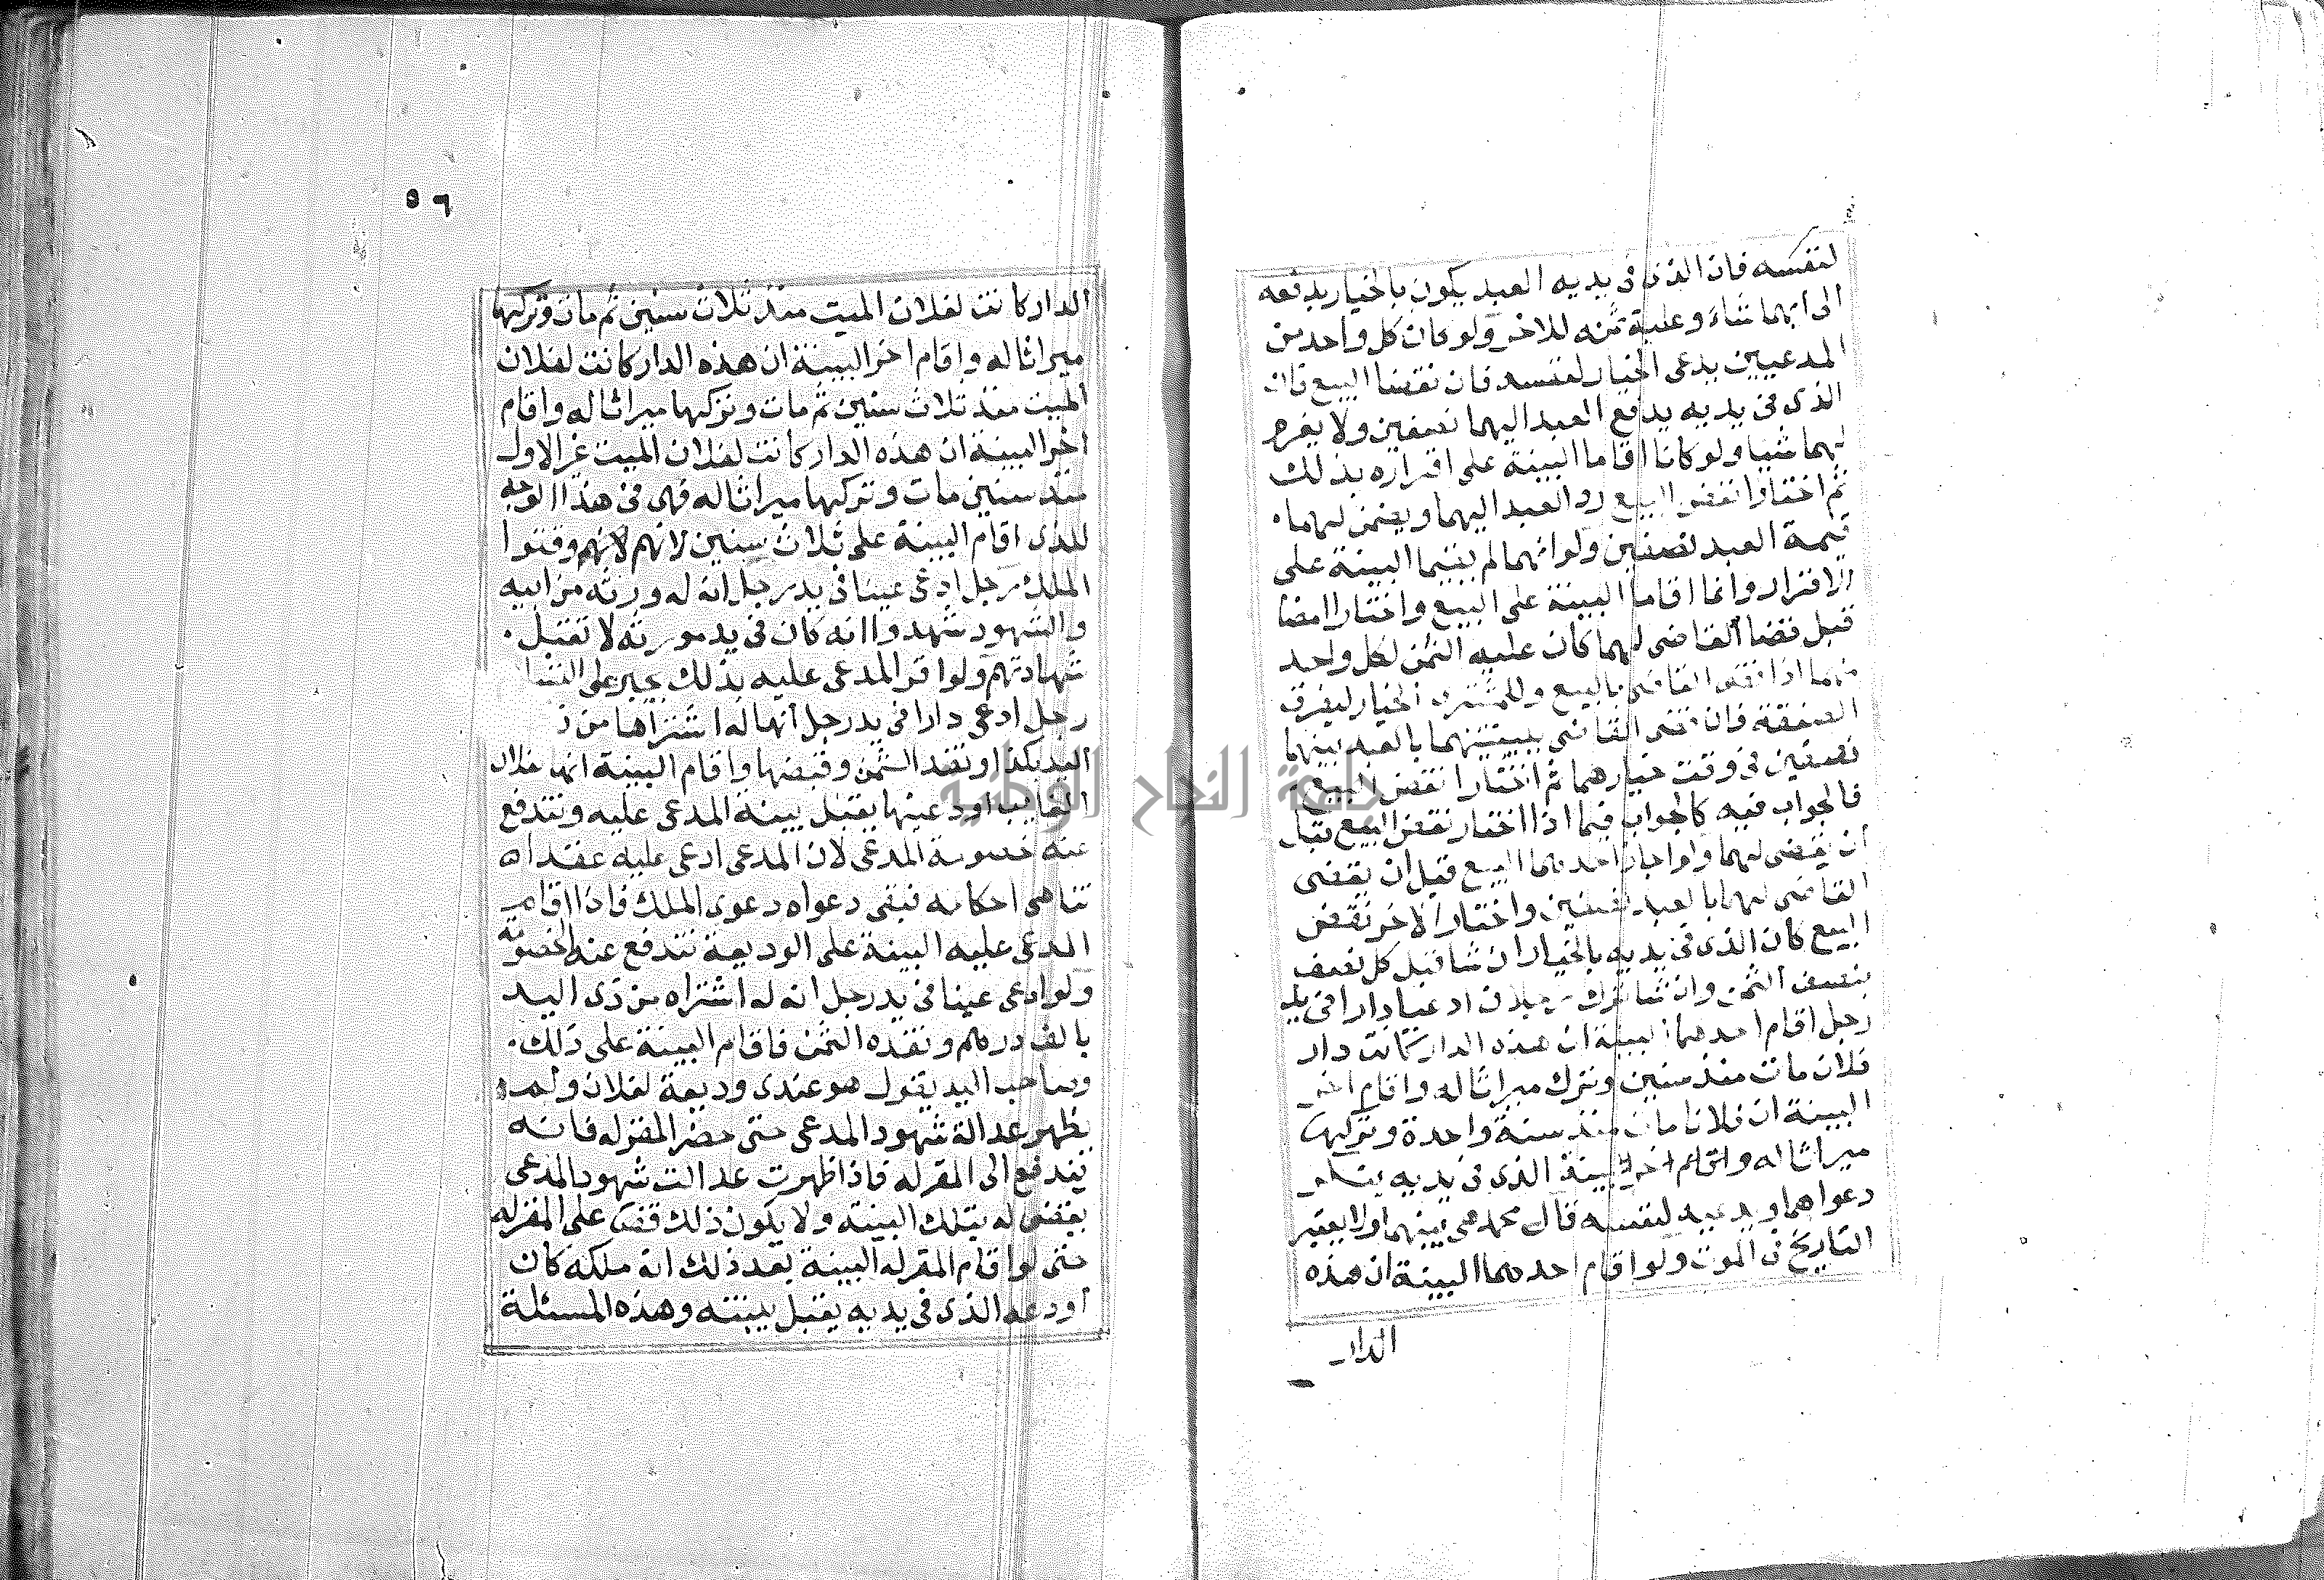 لنفسه فان الذى فى يديه العبد يكون بالخيار يدفعه
الى ايهما شاء وعليه ثمنه للاخر ولو كان كل واحد من
المدعيين يدعى الخيار لنفسه فان نقضا البيع فان
الذى فى يديه يدفع العبد اليهما نصفين ولا يغرم
لهما شيا ولو كانا اقاما البينة على اقراره بذلك
ثم اختارا نقض البيع رد العبد اليهما ويضمن لهما
قيمة العبد نصفين ولو انهما لم يقيما البينة على
الاقرار وانما اقاما البينة على البيع واختارا امضا
قبل قضا القاضى لهما كان عليه الثمن لكل واحد
منهما اذا نقض القاضى بالبيع وللمشترى الخيار ليفرق
الصفقة فان قضى القاضى ببينتهما بالعبد بينهما
نصفين فى وقت خيارهما ثم اختارا نقض البيع
فالجواب فيه كالجواب فيما اذا اختار نقض البيع قبل
ان يقضى لهما ولو اجاز احدهما البيع قبل ان يقضى
القاضى لهما بالعبد نصفين واختار الاخر نقض
البيع كان الذى فى يديه بالخيار ان شا قبل كل نصف
بنصف الثمن وان شا ترك رجلان ادعيا دارا فى يد
رجل اقام احدهما البينة ان هذه الدار كانت دار
فلان مات منذ سنين وترك ميراثا له واقام اخر
البينة ان فلانا مات منذ سنة واحدة وتركها
ميراثا له واقام اخر البينة الذى فى يديه
دعواهما ويدعيه لنفسه قال محمد هى بينهما ولا يعتبر
التاريخ فى الموت ولو اقام احدهما البينة ان هذه
الدار
٥٦
الدار كانت لفلان الميت منذ ثلاث سنين ثم مات وتركها
ميراثا له واقام اخر البينة ان هذه الدار كانت لفلان
الميت منذ ثلاث سنين ثم مات وتركها ميراثا له واقام
اخر البينة ان هذه الدار كانت لفلان الميت غير الاول
منذ سنين مات وتركها ميراثا له فهى فى هذا الوجه
للذى اقام البينة على ثلاث سنين لانهم لانهم وقتوا
الملك رجل ادعى عينا فى يد رجل انه له ورثه من ابيه
والشهود شهدوا انه كان فى يد مورثه لا تقبل
شهادتهم ولو اقر المدعى عليه بذلك يجبر على
رجل ادعى دارا فى يد رجل انها له اشتراها من
اليد بكذا ونقد الثمن وقبضها واقام البينة انها لفلان
الغايب اودعنيها يقبل بينة المدعى عليه وتندفع
عنه خصومة المدعى لان المدعى ادعى عليه عقدا
تناهى احكامه فبقى دعواه دعوى الملك فاذا اقام
المدعى عليه البينة على الوديعة تندفع عنه الخصومة
ولو ادعى عينا فى يد رجل انه له اشتراه من ذى اليد
بالف درهم ونقده الثمن فاقام البينة على ذلك
وصاحب اليد يقول هو عندى وديعة لفلان ولم
يظهر عدالة شهود المدعى حتى حضر المقر له فانه
يندفع الى المقر له فاذا ظهرت عدالت شهود المدعى
يقضى له بتلك البينة ولا يكون ذلك قضا على المقر له
حتى لو اقام المقر له البينة بعد ذلك انه ملكه كان
اودعه الذى فى يديه يقبل بينته وهذه المسئلة
جامعة النجاح الوطنية